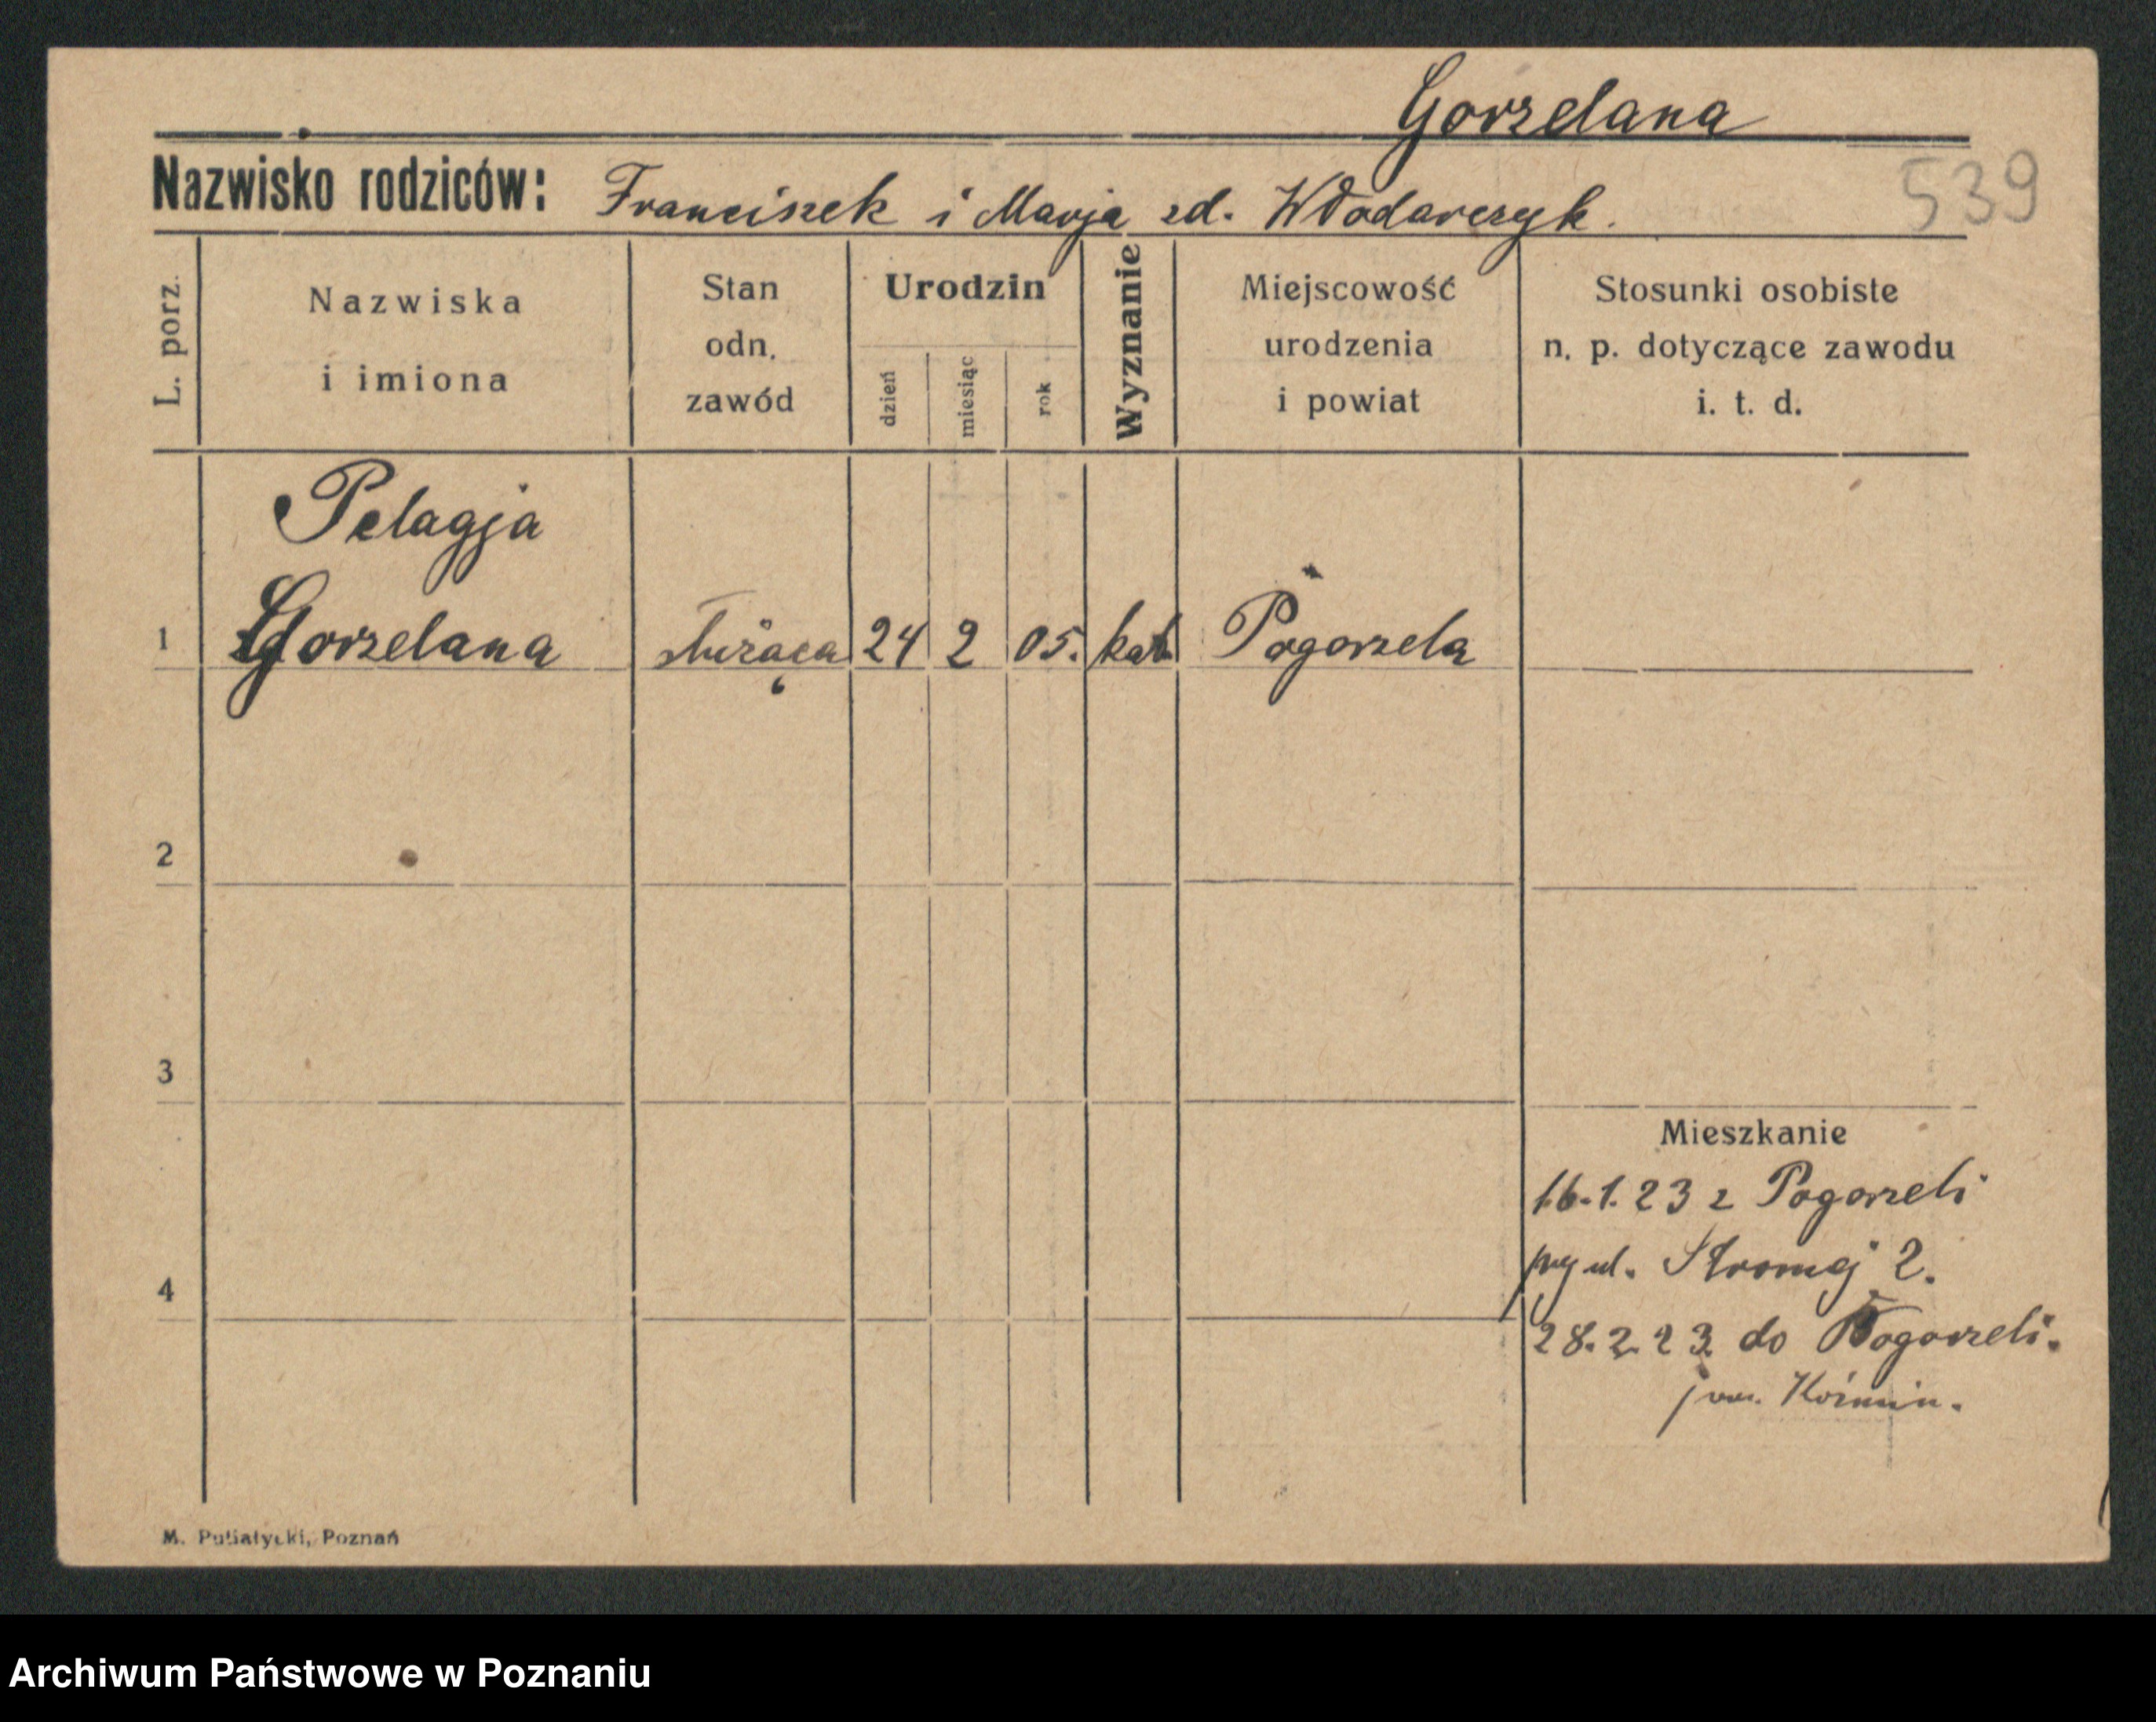 Gorzelana
Nazwisko rodziców: Franciszek i Marja zd. Włodarczyk.
539
L. porz.
Nazwiska
i imiona
Stan
odn.
zawód
Urodzin
dzień
miesiąc
rok
Wyznanie
Miejscowość
urodzenia
i powiat
Stosunki osobiste
n. p. dotyczące zawodu
i. t. d.
Pelagja
1 Gorzelana służąca 24 2 05. kat Pogorzela
2
3
Mieszkanie
16.1.23 z Pogorzeli
przy ul. Stromej 2.
4
28.2.23 do Pogorzeli.
pow. Koźmin.
M. Putiatycki, Poznań
Archiwum Państwowe w Poznaniu